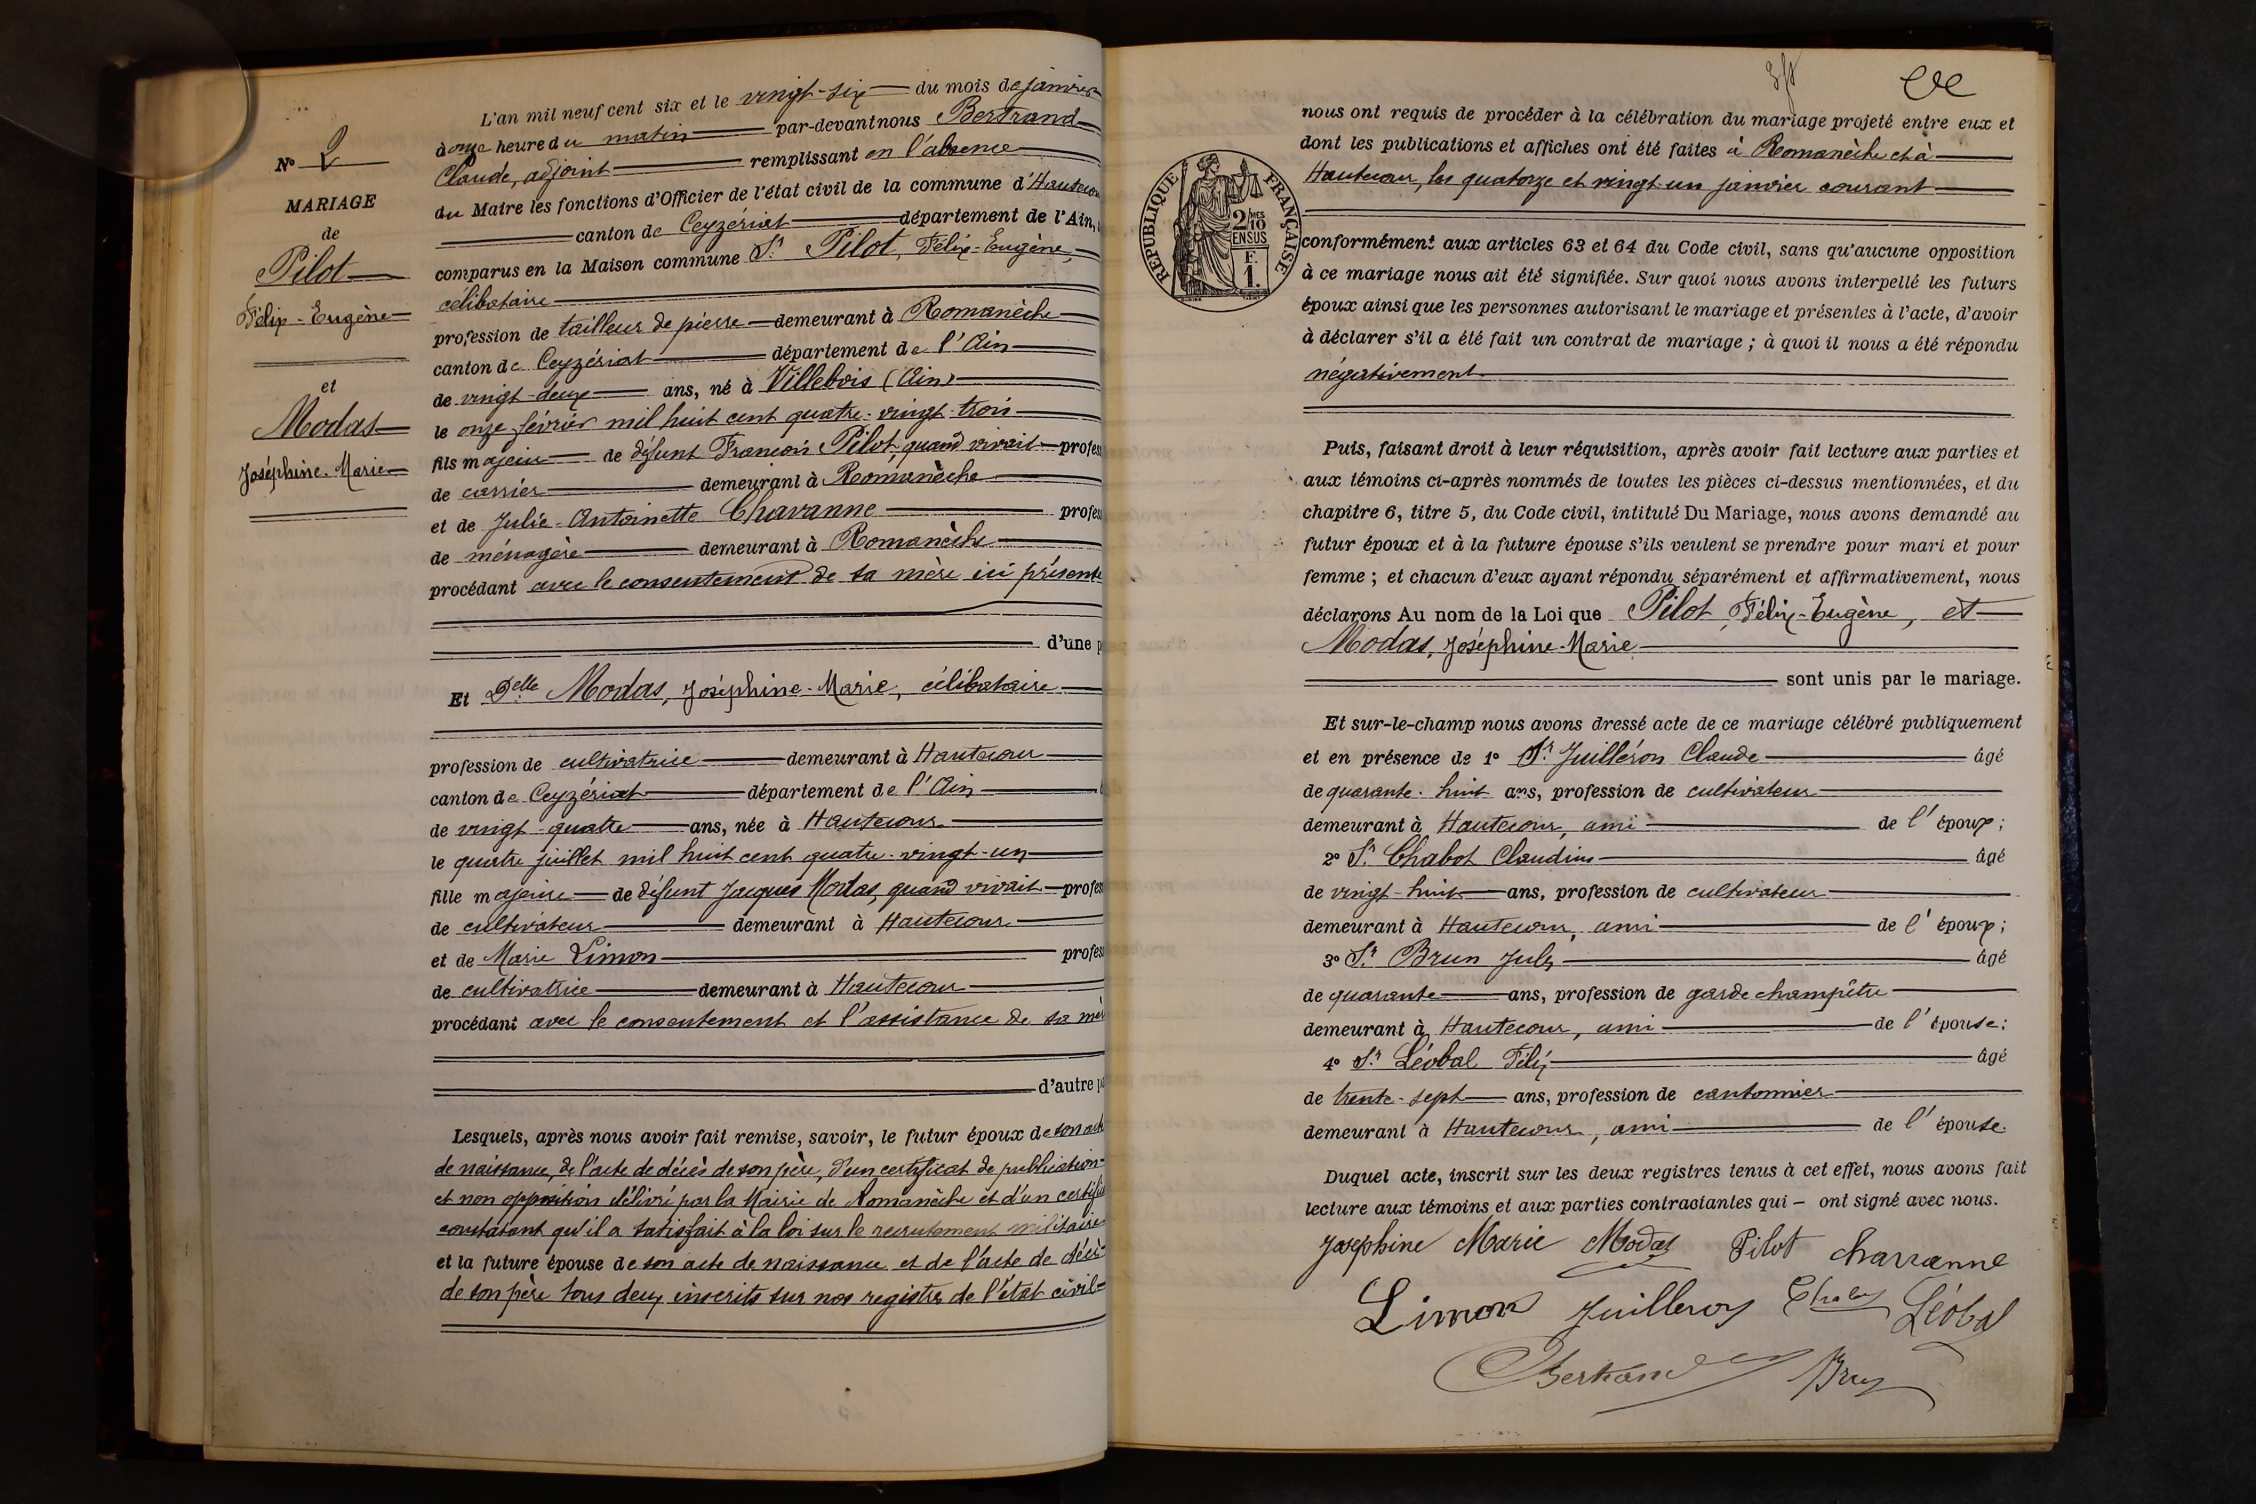 N° 2
MARIAGE
de
Pilot
Félix-Eugène
et
Modas
Joséphine-Marie
L'an mil neuf cent six et le vingt-six du mois de janvier
à onze heure du matin par-devant nous Bertrand
Claude, adjoint remplissant en l'absence
du Maire les fonctions d'Officier de l'état civil de la commune d'Hautecour
canton de Ceyzériat département de l'Ain,
comparus en la Maison commune Sr Pilot, Félix-Eugène,
célibataire
profession de tailleur de pierre demeurant à Romanèche
canton de Ceyzériat département de l'Ain
de vingt-deux ans, né à Villebois (Ain)
le onze février mil huit cent quatre-vingt-trois
fils majeur de défunt François Pilot, quand vivait profes
de carrier demeurant à Romanèche
et de Julie-Antoinette Chavanne profes
de ménagère demeurant à Romanèche
procédant avec le consentement de sa mère ici présente
d'une p
Et Delle Modas, Joséphine-Marie, célibataire
profession de cultivatrice demeurant à Hautecour
canton de Ceyzériat département de l'Ain
de vingt-quatre ans, née à Hautecour
le quatre juillet mil huit cent quatre-vingt-un
fille majeure de défunt Jacques Modas, quand vivait profes
de cultivateur demeurant à Hautecour
et de Marie Limon profes
de cultivatrice demeurant à Hautecour
procédant avec le consentement et l'assistance de sa mère
d'autre pa
Lesquels, après nous avoir fait remise, savoir, le futur époux de son acte
de naissance, de l'acte de décès de son père, d'un certificat de publication
et non opposition délivré par la Mairie de Romanèche et d'un certificat
constatant qu'il a satisfait à la loi sur le recrutement militaire
et la future épouse de son acte de naissance et de l'acte de décès
de son père tous deux inscrits sur nos registres de l'état civil
RÉPUBLIQUE FRANÇAISE
2/10 MES
EN SUS
F.
1.
nous ont requis de procéder à la célébration du mariage projeté entre eux et
dont les publications et affiches ont été faites à Romanèche et à
Hautecour, les quatorze et vingt-un janvier courant
conformément aux articles 63 et 64 du Code civil, sans qu'aucune opposition
à ce mariage nous ait été signifiée. Sur quoi nous avons interpellé les futurs
époux ainsi que les personnes autorisant le mariage et présentes à l'acte, d'avoir
à déclarer s'il a été fait un contrat de mariage ; à quoi il nous a été répondu
négativement
Puis, faisant droit à leur réquisition, après avoir fait lecture aux parties et
aux témoins ci-après nommés de toutes les pièces ci-dessus mentionnées, et du
chapitre 6, titre 5, du Code civil, intitulé Du Mariage, nous avons demandé au
futur époux et à la future épouse s'ils veulent se prendre pour mari et pour
femme ; et chacun d'eux ayant répondu séparément et affirmativement, nous
déclarons Au nom de la Loi que Pilot, Félix-Eugène, et
Modas, Joséphine-Marie
sont unis par le mariage.
Et sur-le-champ nous avons dressé acte de ce mariage célébré publiquement
et en présence de 1° Sr Juilléron Claude âgé
de quarante-huit ans, profession de cultivateur
demeurant à Hautecour, ami de l'époux ;
2° Sr Chabot Claudius âgé
de vingt-huit ans, profession de cultivateur
demeurant à Hautecour, ami de l'époux ;
3° Sr Brun Jules âgé
de quarante ans, profession de garde champêtre
demeurant à Hautecour, ami de l'épouse ;
4° Sr Léobal Félix âgé
de trente-sept ans, profession de cantonnier
demeurant à Hautecour, ami de l'épouse.
Duquel acte, inscrit sur les deux registres tenus à cet effet, nous avons fait
lecture aux témoins et aux parties contractantes qui – ont signé avec nous.
Josephine Marie Modas Pilot Charranne
Limon Juilleron Léobal
Bertrand Brun